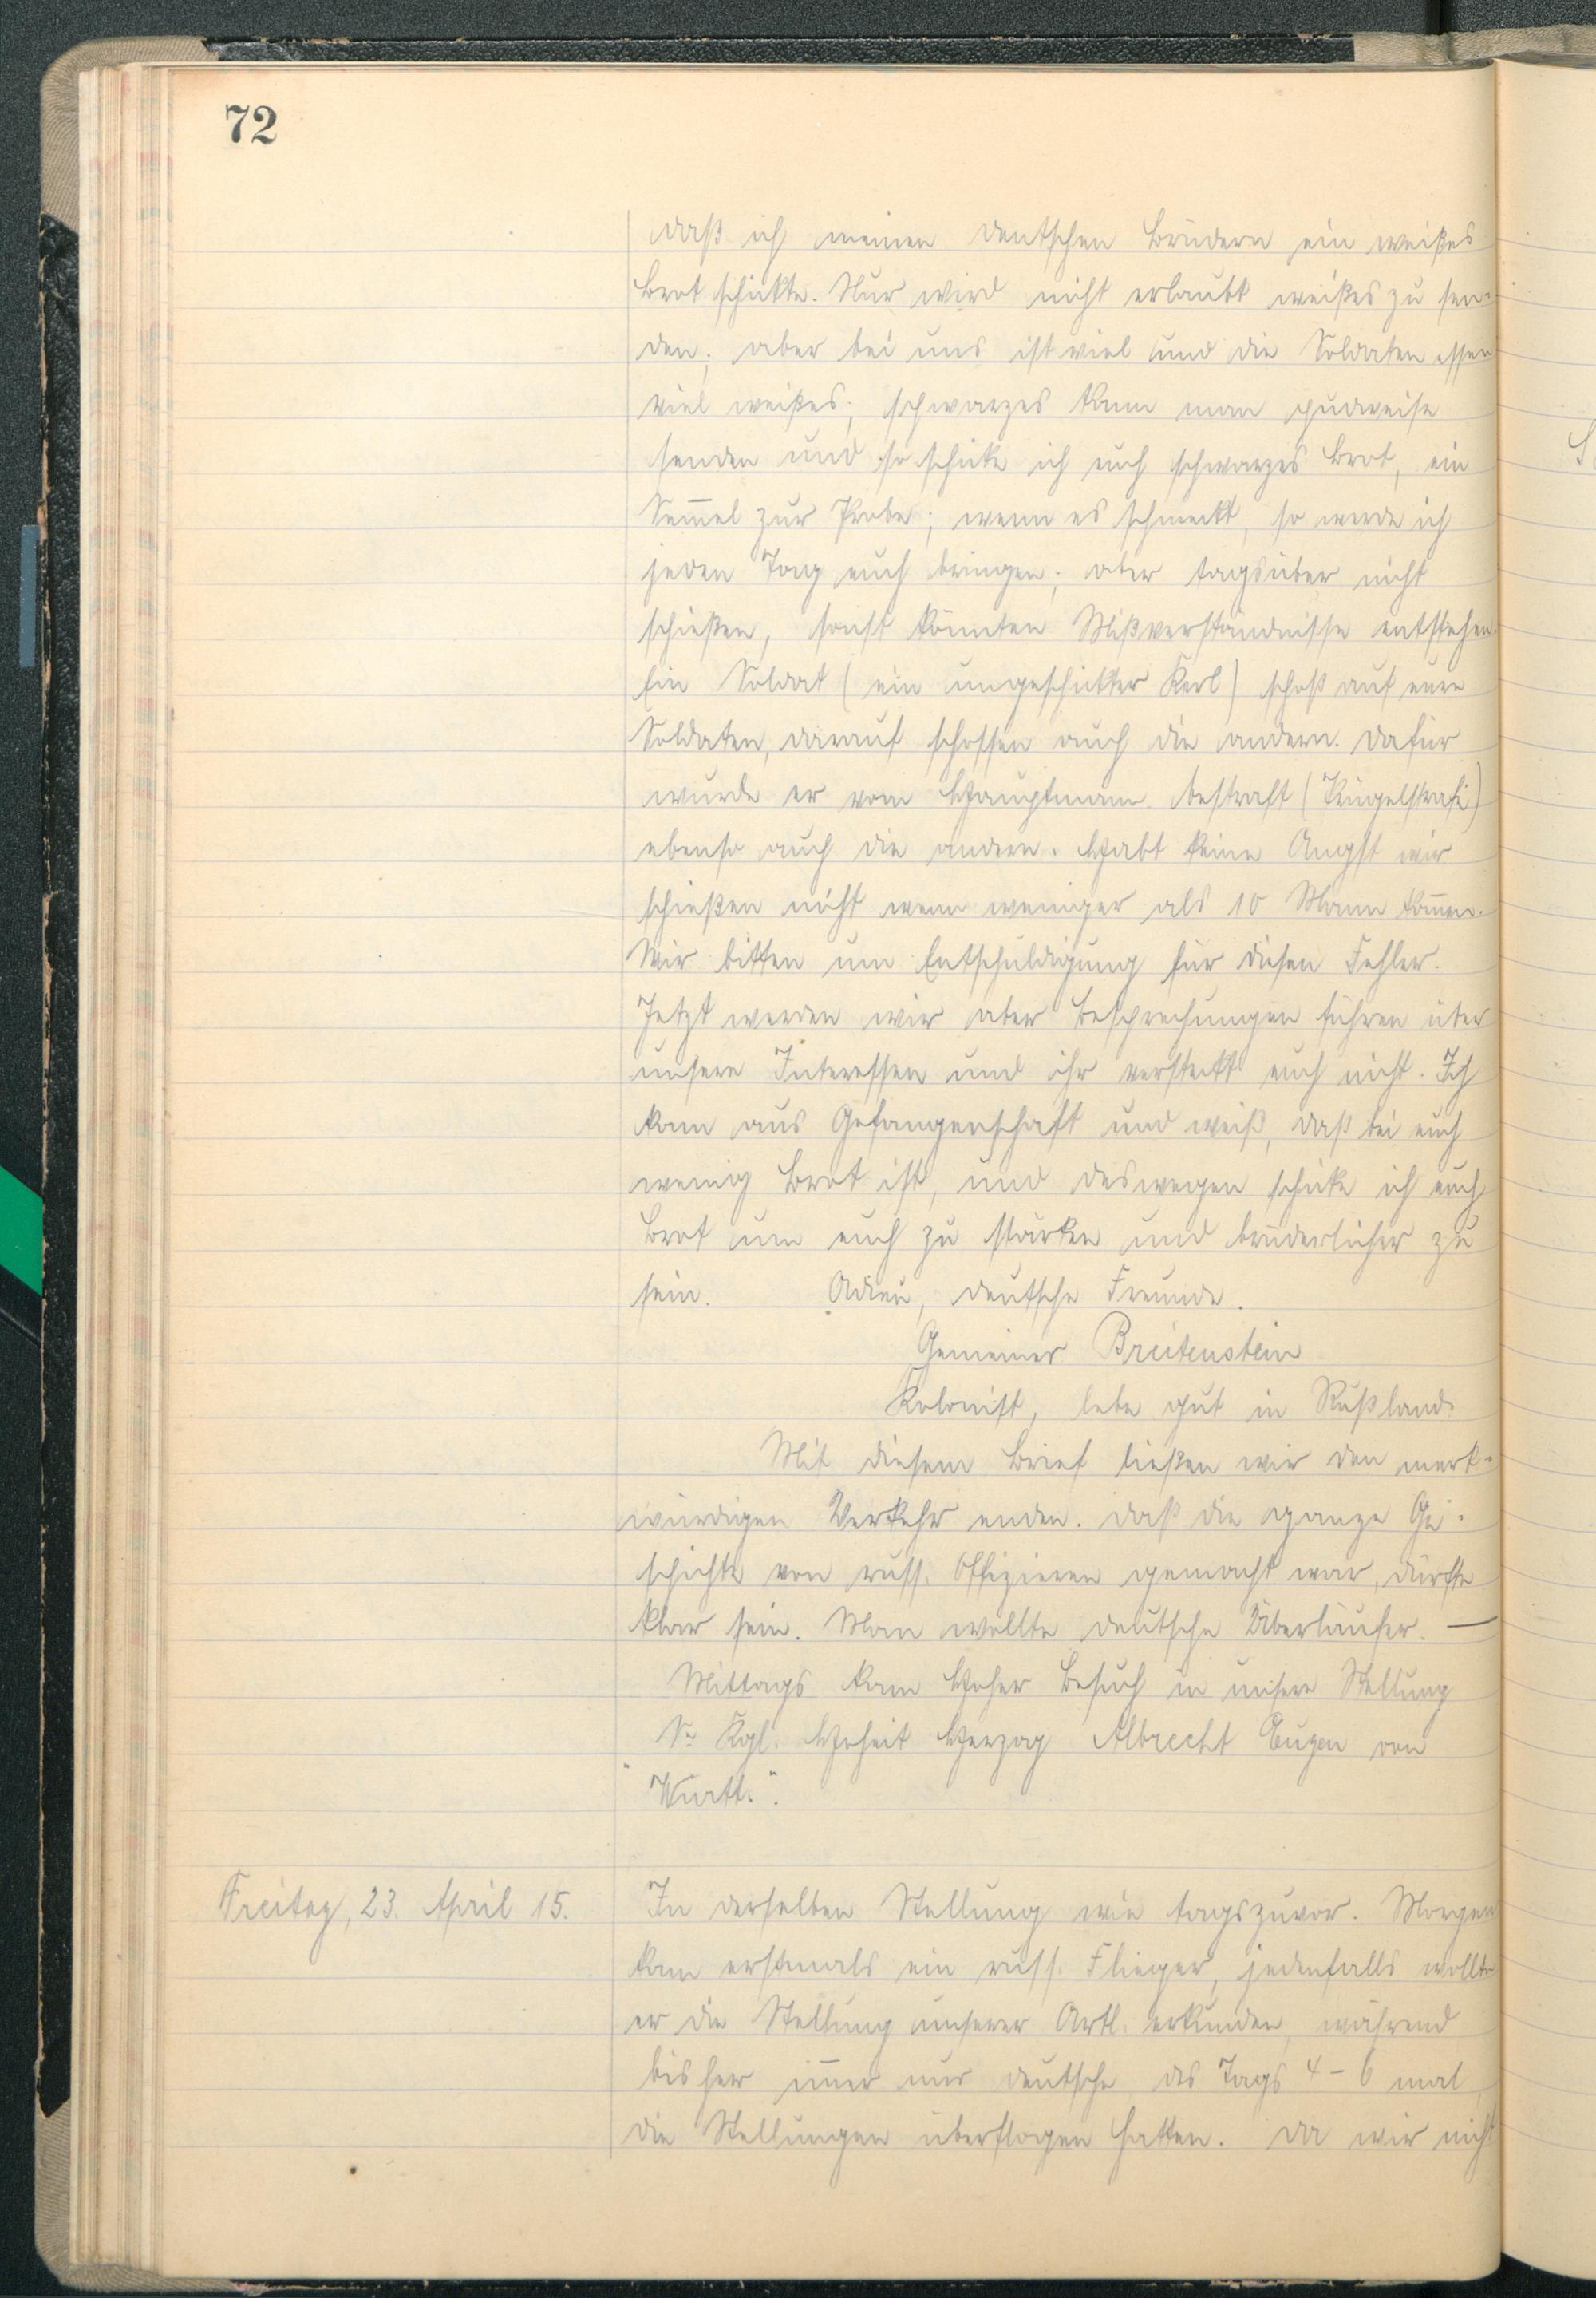 72
daß ich meinen deutschen Brüdern ein weißes
Brot schickte. Nur wird nicht erlaubt weißes zu sen-
den; aber bei uns ist viel und die Soldaten essen
viel weißes; schwarzes kann man pudweise
senden und so schicke ich euch schwarzes Brot, ein
Sem̄el zur Probe; wenn es schmeckt, so werde ich
jeden Tag euch bringen; aber tagsüber nicht
schießen, sonst könnten Mißverständnisse entstehen.
Ein Soldat (ein ungeschickter Kerl) schoß auf eure
Soldaten, darauf schossen auch die andern. Dafür
wurde er vom Hauptmann bestraft (Prügelstrafe)
ebenso auch die andern. Habt keine Angst wir
schießen nicht wenn weniger als 10 Mann kom̄en.
Wir bitten um Entschuldigung für diesen Fehler.
Jetzt werden wir aber Besprechungen führen über
unsere Interessen und ihr versteckt euch nicht. Ich
kam aus Gefangenschaft und weiß, daß bei euch
wenig Brot ist, und deswegen schicke ich euch
Brot um euch zu stärken und brüderlicher zu
sein. Adieu, deutsche Freunde.
Gemeiner Breitenstein
Kolonist, lebe gut in Rußland.
Mit diesem Brief ließen wir den merk-
würdigen Verkehr enden. Daß die ganze Ge-
schichte von russ. Offizieren gemacht war, dürfte
klar sein. Man wollte deutsche Überläufer. —
Mittags kam Hoher Besuch in unsere Stellung
"Se Kgl. Hoheit Herzog Albrecht Eugen von
Württ.".
Freitag, 23. April 15.
In derselben Stellung wie tagszuvor. Morgen
kam erstmals ein russ. Flieger, jedenfalls wollte
er die Stellung unserer Artl. erkunden, während
bisher im̄er nur deutsche, des Tags 4-6 mal,
die Stellungen überflogen hatten. Da wir nicht